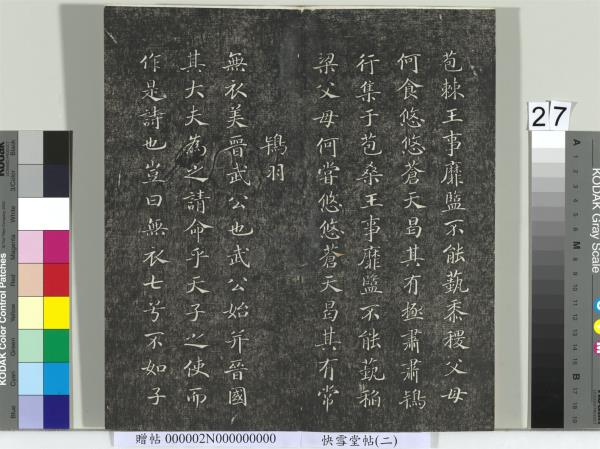 苞棘王事靡盬不能蓺黍稷父母
何食悠悠蒼天曷其有極肅肅鴇
行集于苞桑王事靡盬不能蓺稻
梁父母何甞悠悠蒼天曷其有常
鴇羽
無衣美晉武公也武公始并晉國
其大夫爲之請命乎天子之使而
作是詩也豈曰無衣七兮不如子
27
KODAK Color Control Patches
Blue
Cyan
Green
Yellow
Red
Magenta
White
3/Color
Black
KODAK Gray Scale
A 1 2 3 4 5 6 M 8 9 10 11 12 13 14 15 B 17 18 19
C
Y
M
贈帖 000002N000000000 快雪堂帖(二)